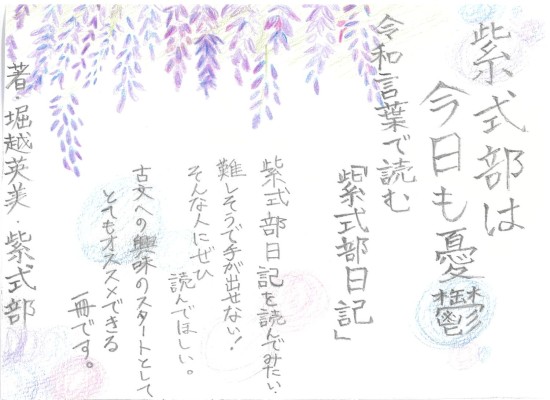 紫式部は
今日も憂鬱
令和言葉で読む
「紫式部日記」
紫式部日記を読んでみたい、
難しそうで手が出せない!
そんな人にぜひ
読んでほしい。
古文への興味のスタートとして
とてもオススメできる
一冊です。
著・堀越英美・紫式部